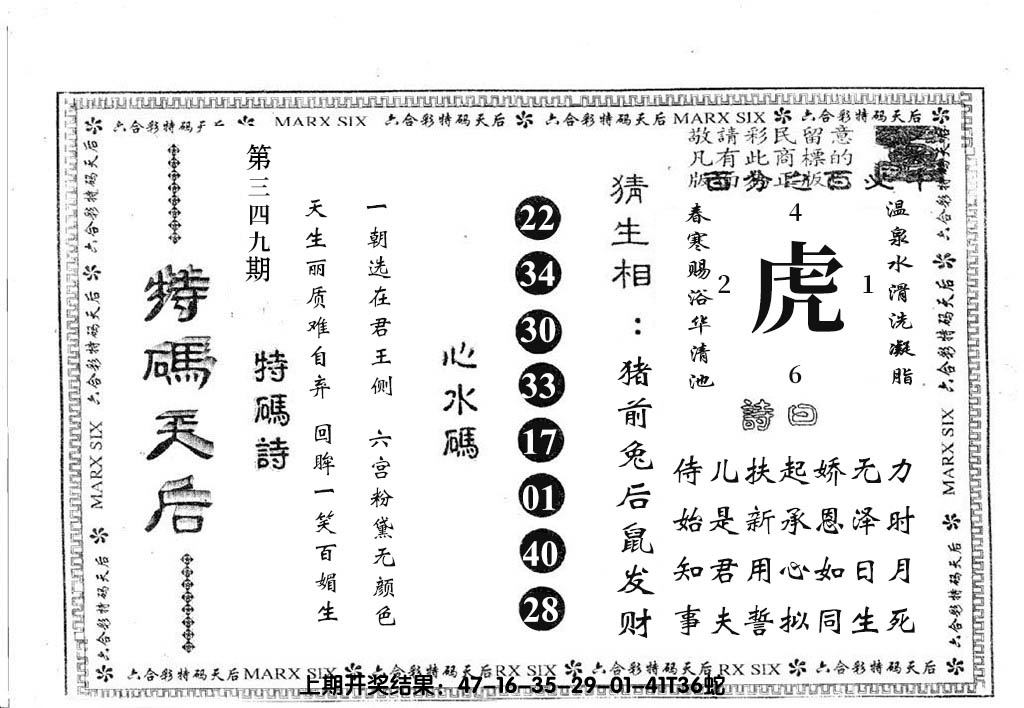 六合彩特码天后 MARX SIX 六合彩特码天后 六合彩特码天后 MARX SIX 六合彩特码天后
敬請彩民留意
凡有此商標的
版面为正版
春寒赐浴华清池
温泉水滑洗凝脂
4
2
虎
1
6
詩曰
侍儿扶起娇无力
始是新承恩泽时
知君用心如日月
事夫誓拟同生死
猜生相：猪前兔后鼠发财
22
34
30
33
17
01
40
28
心水碼
一朝选在君王侧 六宫粉黛无颜色
天生丽质难自弃 回眸一笑百媚生
第三四九期
特碼詩
特碼天后
六合彩特码天后
六合彩特码天后
MARX SIX
六合彩特码天后
六合彩特码天后
六合彩特码天后
MARX SIX
六合彩特码天后
六合彩特码天后 MARX SIX 六合彩特码天后 RX SIX 六合彩特码天后 RX SIX 六合彩特码天后
上期开奖结果：47-16-35-29-01-41T36蛇